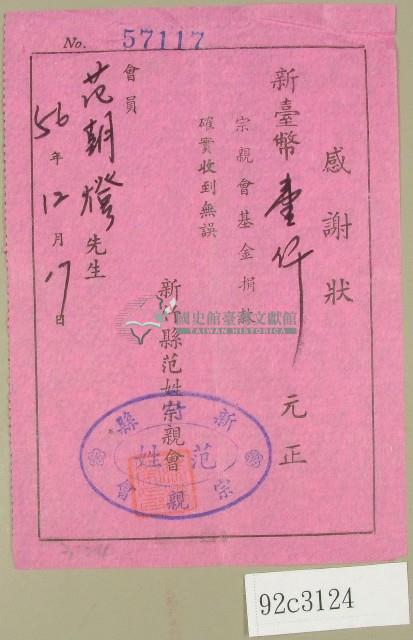 No. 57117
感謝狀
新臺幣壹仟元正
宗親會基金捐款
確實收到無誤
新竹縣范姓宗親會
會員
范朝燈先生
56年12月17日
國史館臺灣文獻館
TAIWAN HISTORICA
新竹縣
范姓
宗親會
92c3124